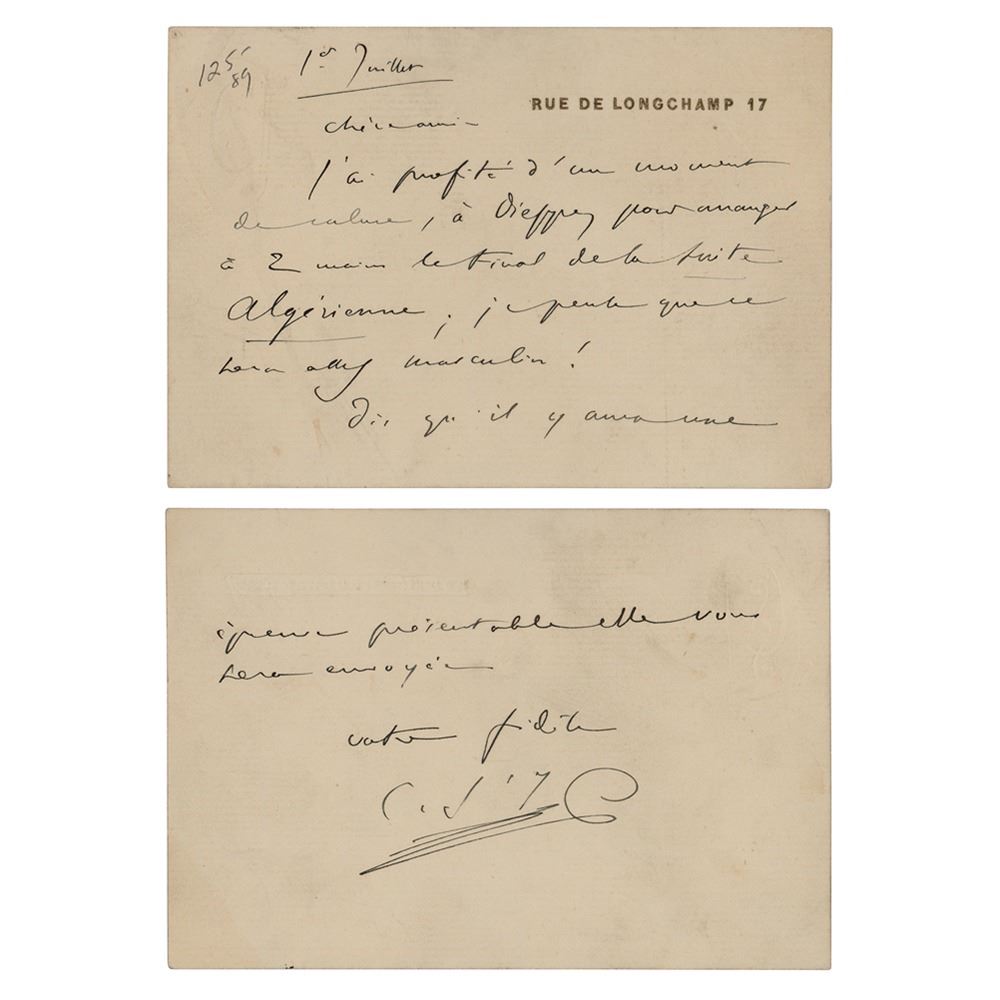 125
89
1er Juillet
RUE DE LONGCHAMP 17
chère amie
J'ai profité d'un moment
de calme, à Dieppe, pour arranger
à 2 mains le final de la Suite
Algérienne; je pense que ce
sera assez masculin!
Dès qu'il y aura une
épreuve présentable elle vous
sera envoyée
votre fidèle
C. S